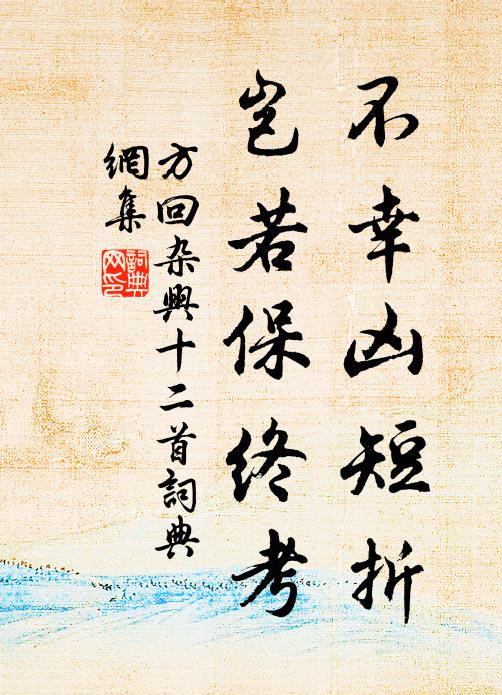 不幸凶短折
岂若保终考
方回杂兴十二首詞典
網集
詞典网印